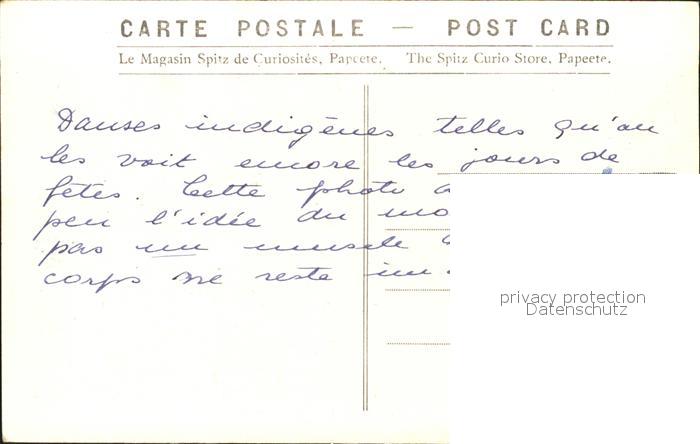 CARTE POSTALE — POST CARD
Le Magasin Spitz de Curiosités, Papeete. The Spitz Curio Store, Papeete.
Danses indigènes telles qu'on
les voit encore les jours de
fêtes. Cette photo
peu l'idée du mo
pas un muscle
corps ne reste im
privacy protection
Datenschutz